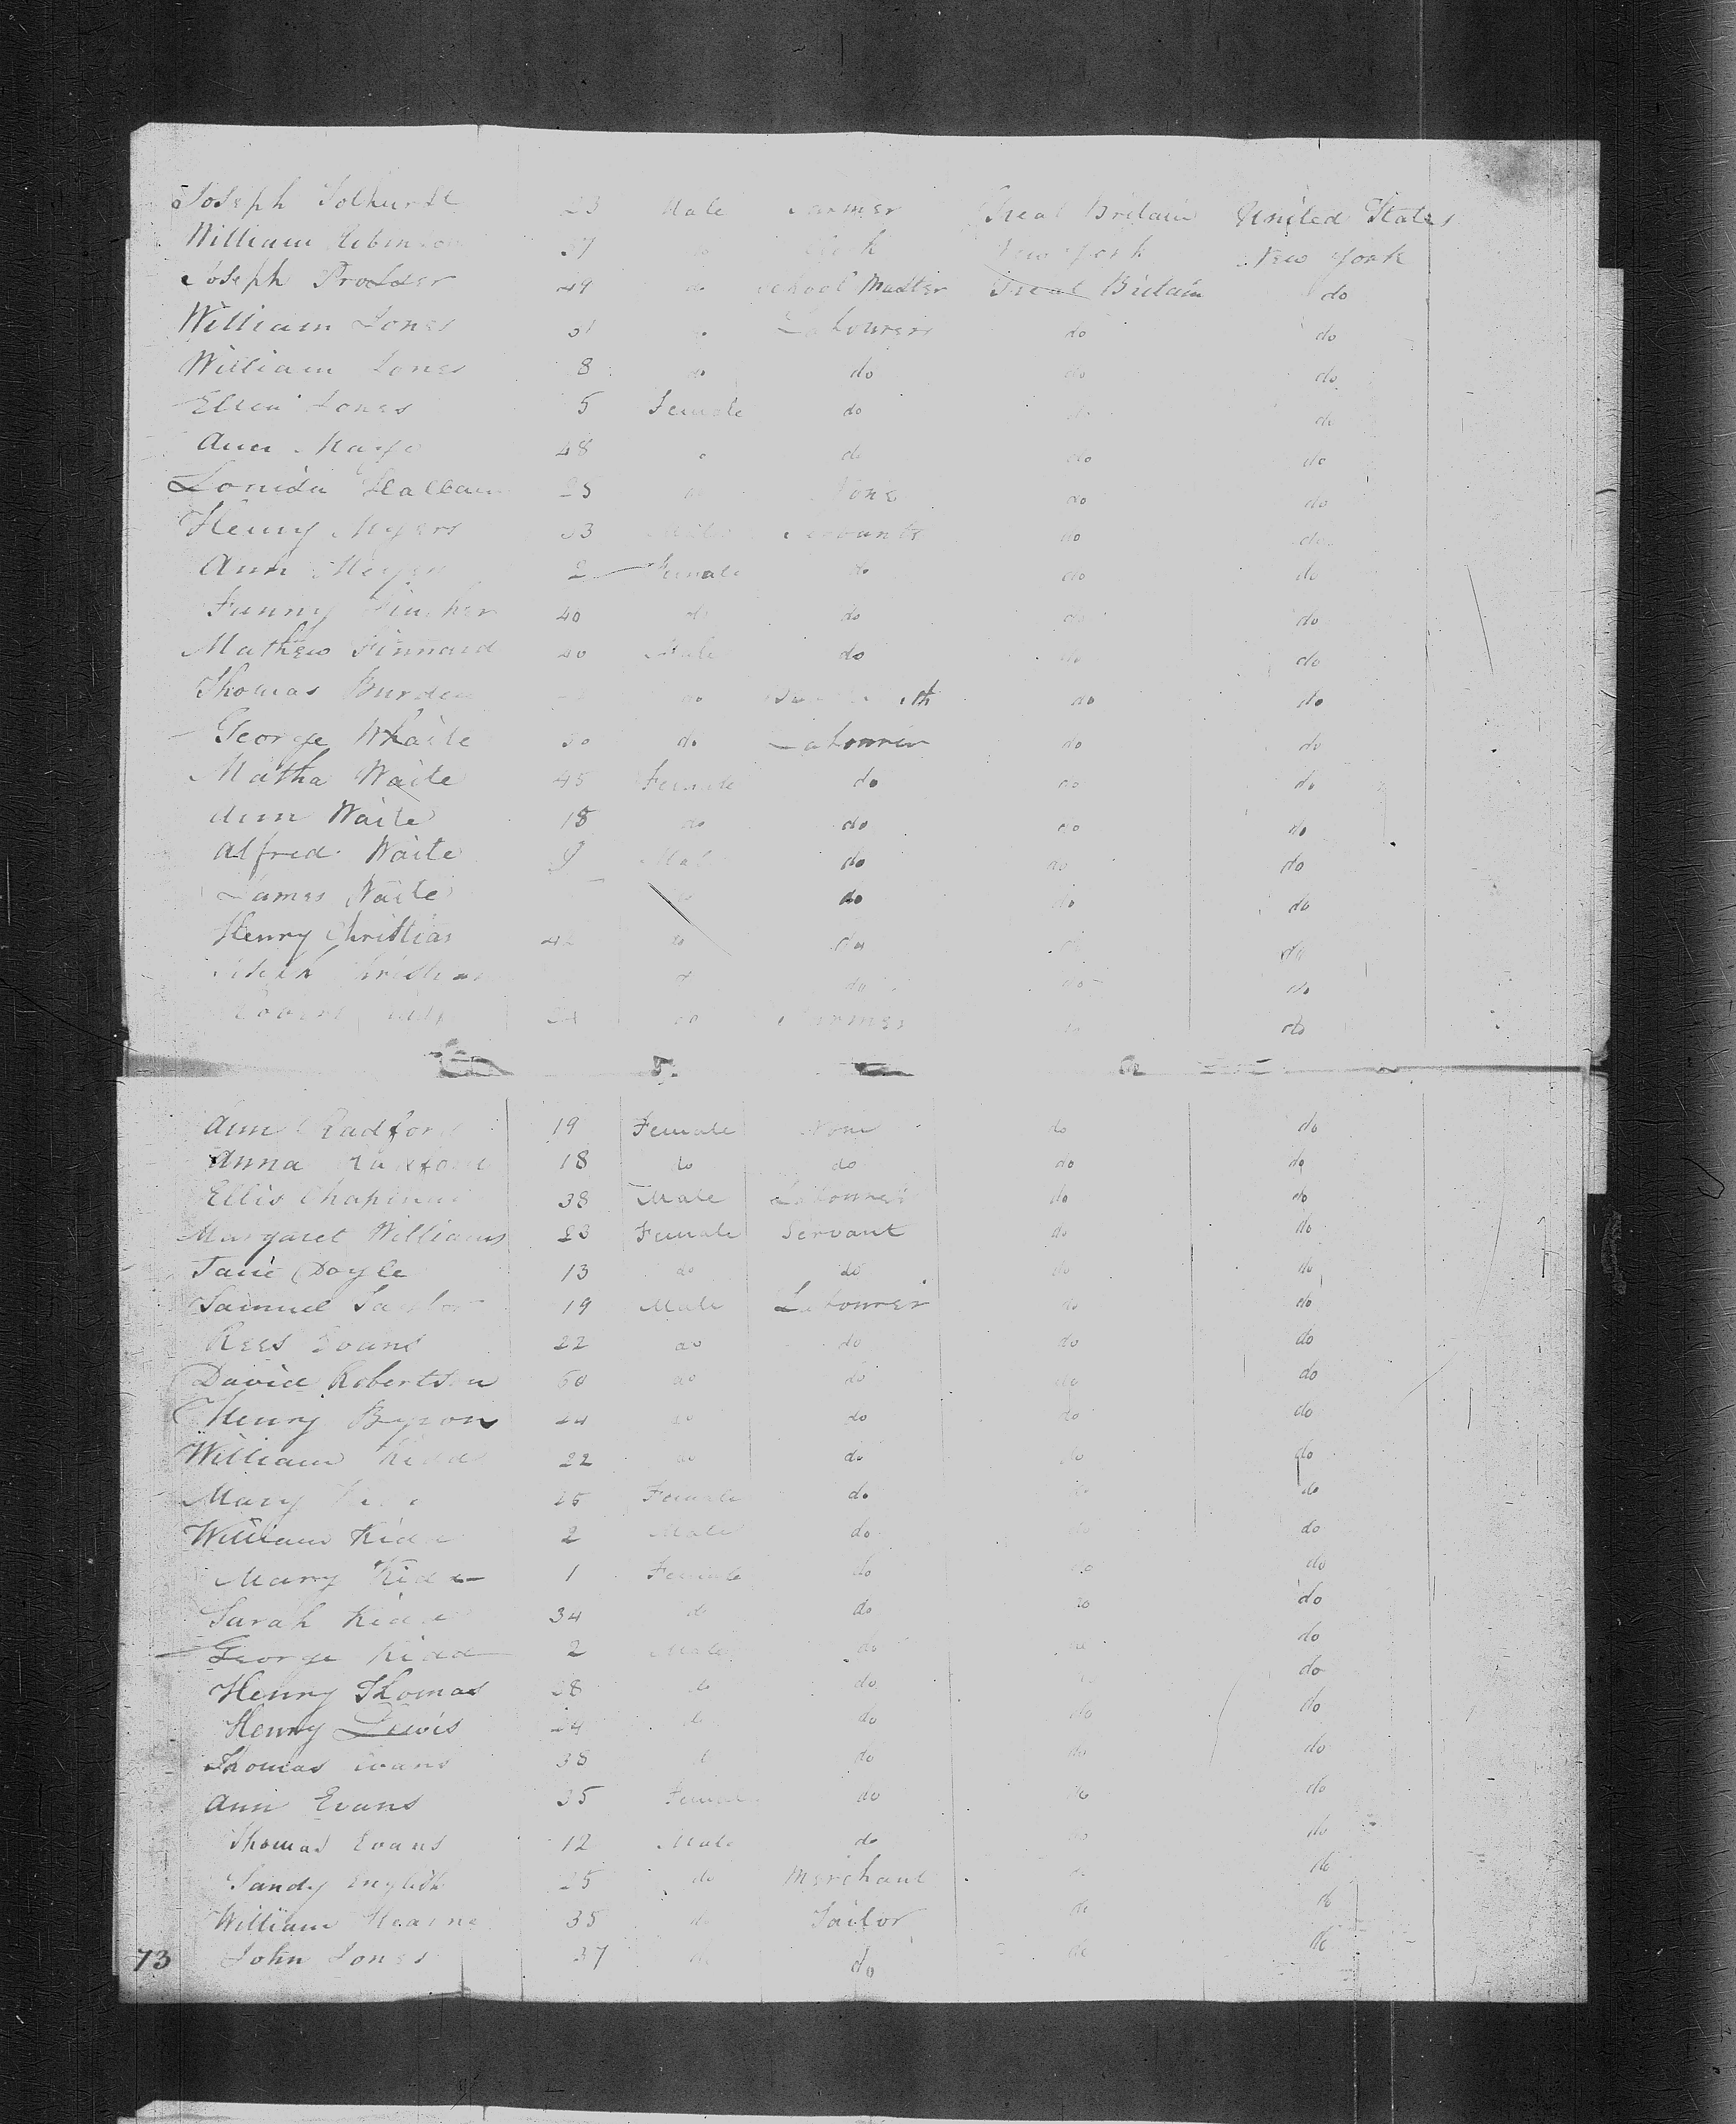 Joseph Tolhurst 23 Male Farmer Great Britain United States
William Robinson 37 do New York New York
Joseph Prosser 49 do School Master Great Britain do
William Jones do Labourers do do
William Jones 8 do do do do
Ellen Jones 5 Female do do do
Ann 48 do do do
Louisa 25 do None do do
Henry Myers 33 Male Servants do do
Ann 2 Female do do do
Fanny 40 do do do do
Mathew Kinnard 40 Male do do do
Thomas Burden do do do
George Whaite 50 do Labourer do do
Matha Waite 45 Female do do do
Ann Waite 18 do do do do
Alfred Waite 9 Male do do do
James Waite do do do do
Henry Christian do do do do
Christian do do do do
do Farmer do do
Ann Radford 19 Female None do do
Anna Radford 18 do do do do
Ellis Chapman 38 Male Labourer do do
Margaret Williams 23 Female Servant do do
Jane Doyle 13 do do do do
Samuel Taylor 19 Male Labourer do do
Rees Evans 22 do do do do
David Robertson 60 do do do do
Henry Byron 24 do do do do
William Kidd 22 do do do do
Mary 25 Female do do do
William Kidd 2 Male do do do
Mary Kidd 1 Female do do do
Sarah Kidd 34 do do do do
George Kidd 2 Male do do do
Henry Thomas 28 do do do do
Henry Lewis 24 do do do do
Thomas Evans 38 do do do do
Ann Evans 35 Female do do do
Thomas Evans 12 Male do do do
Sandy English 25 do Merchant do do
William Hearne 35 do Tailor do do
73 John Jones 37 do do do do